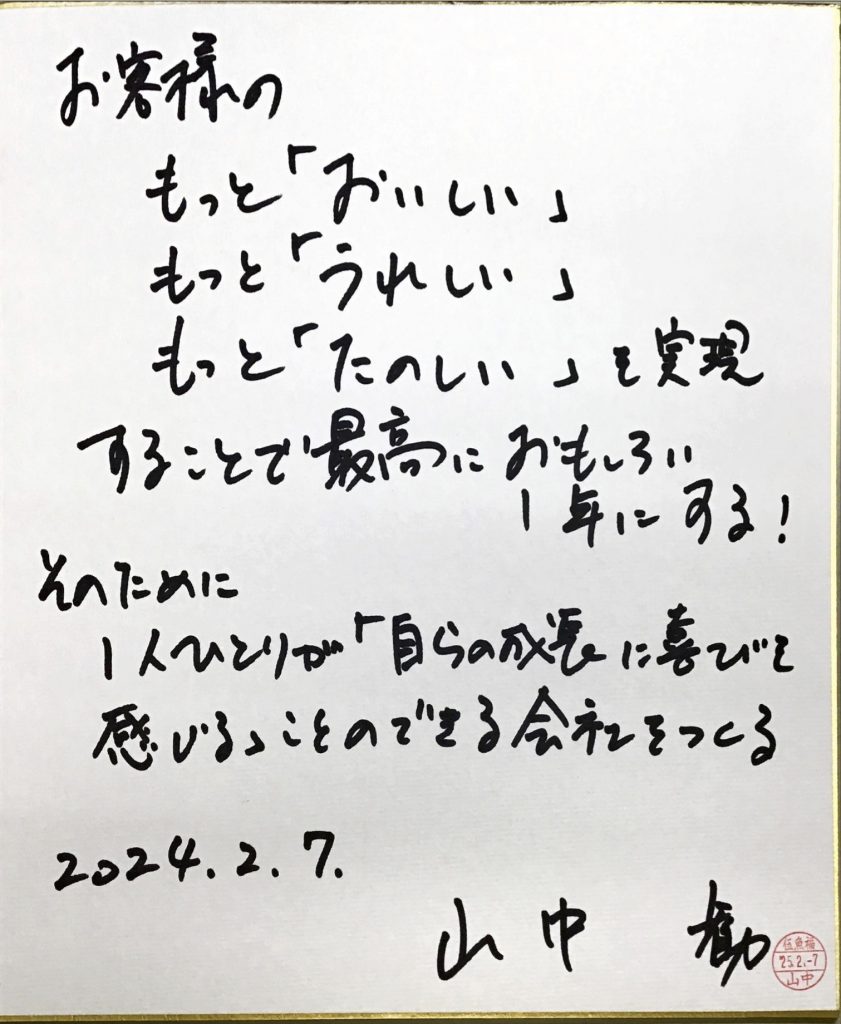 お客様の
もっと「おいしい」
もっと「うれしい」
もっと「たのしい」を実現
することで最高におもしろい
1年にする!
そのために
1人ひとりが「自らの成長に喜びを
感じる」ことのできる会社をつくる
2024.2.7.
山中 勧
伍魚福
'25.2.-7
山中